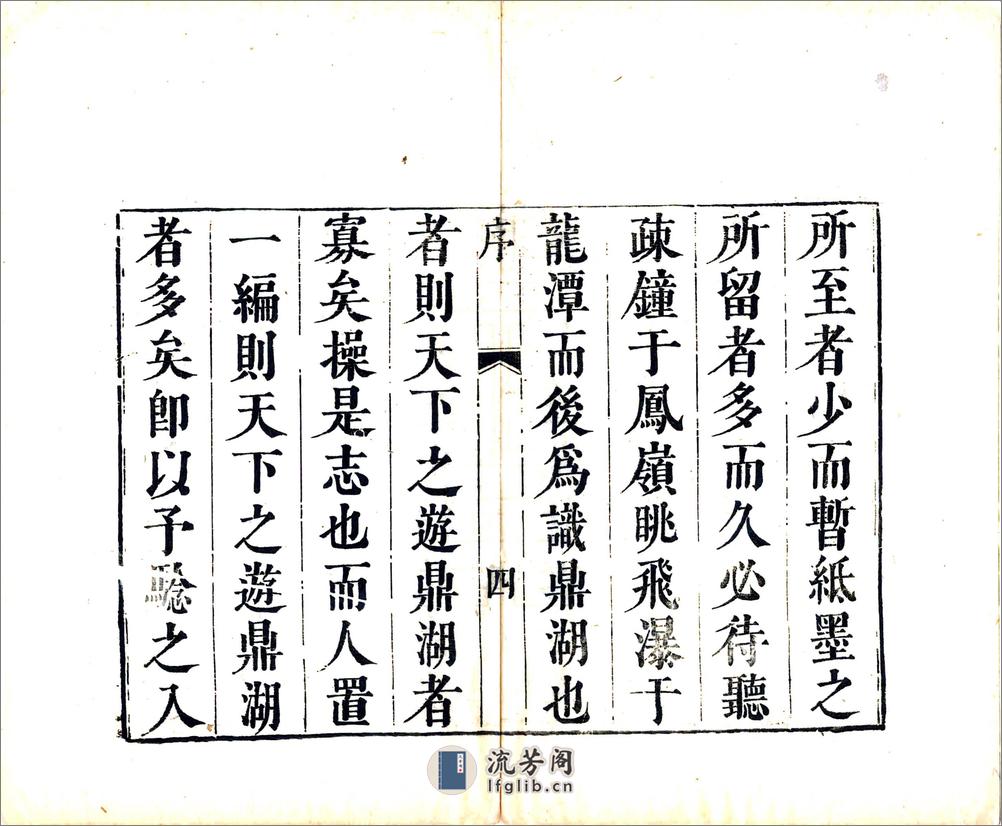 所至者少而暫紙墨之
所留者多而久必待聽
疎鐘于鳳嶺眺飛瀑于
龍潭而後爲識鼎湖也
序
四
者則天下之遊鼎湖者
寡矣操是志也而人置
一編則天下之遊鼎湖
者多矣卽以予之入
流芳阁
lfglib.cn